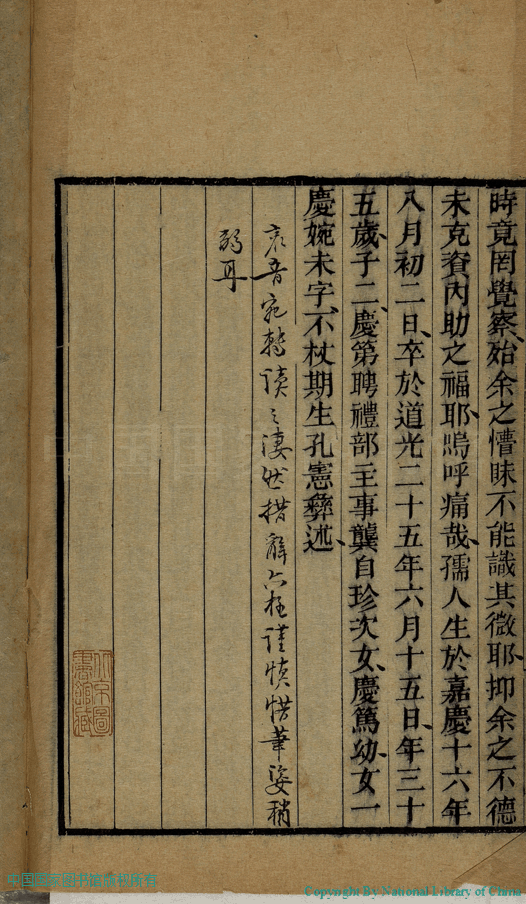 時竟罔覺察、殆余之懵昧不能識其微耶、抑余之不德
未克資內助之福耶、嗚呼痛哉、孺人生於嘉慶十六年
八月初二日、卒於道光二十五年六月十五日、年三十
五歲、子二、慶第聘禮部主事龔自珍次女、慶篤幼、女一
慶婉未字、不杖期生孔憲彝述、
哀音宛轉讀之淒然措辭亦極謹慎惜筆姿稍
弱耳
北京圖
書館藏
Copyright By National Library of China